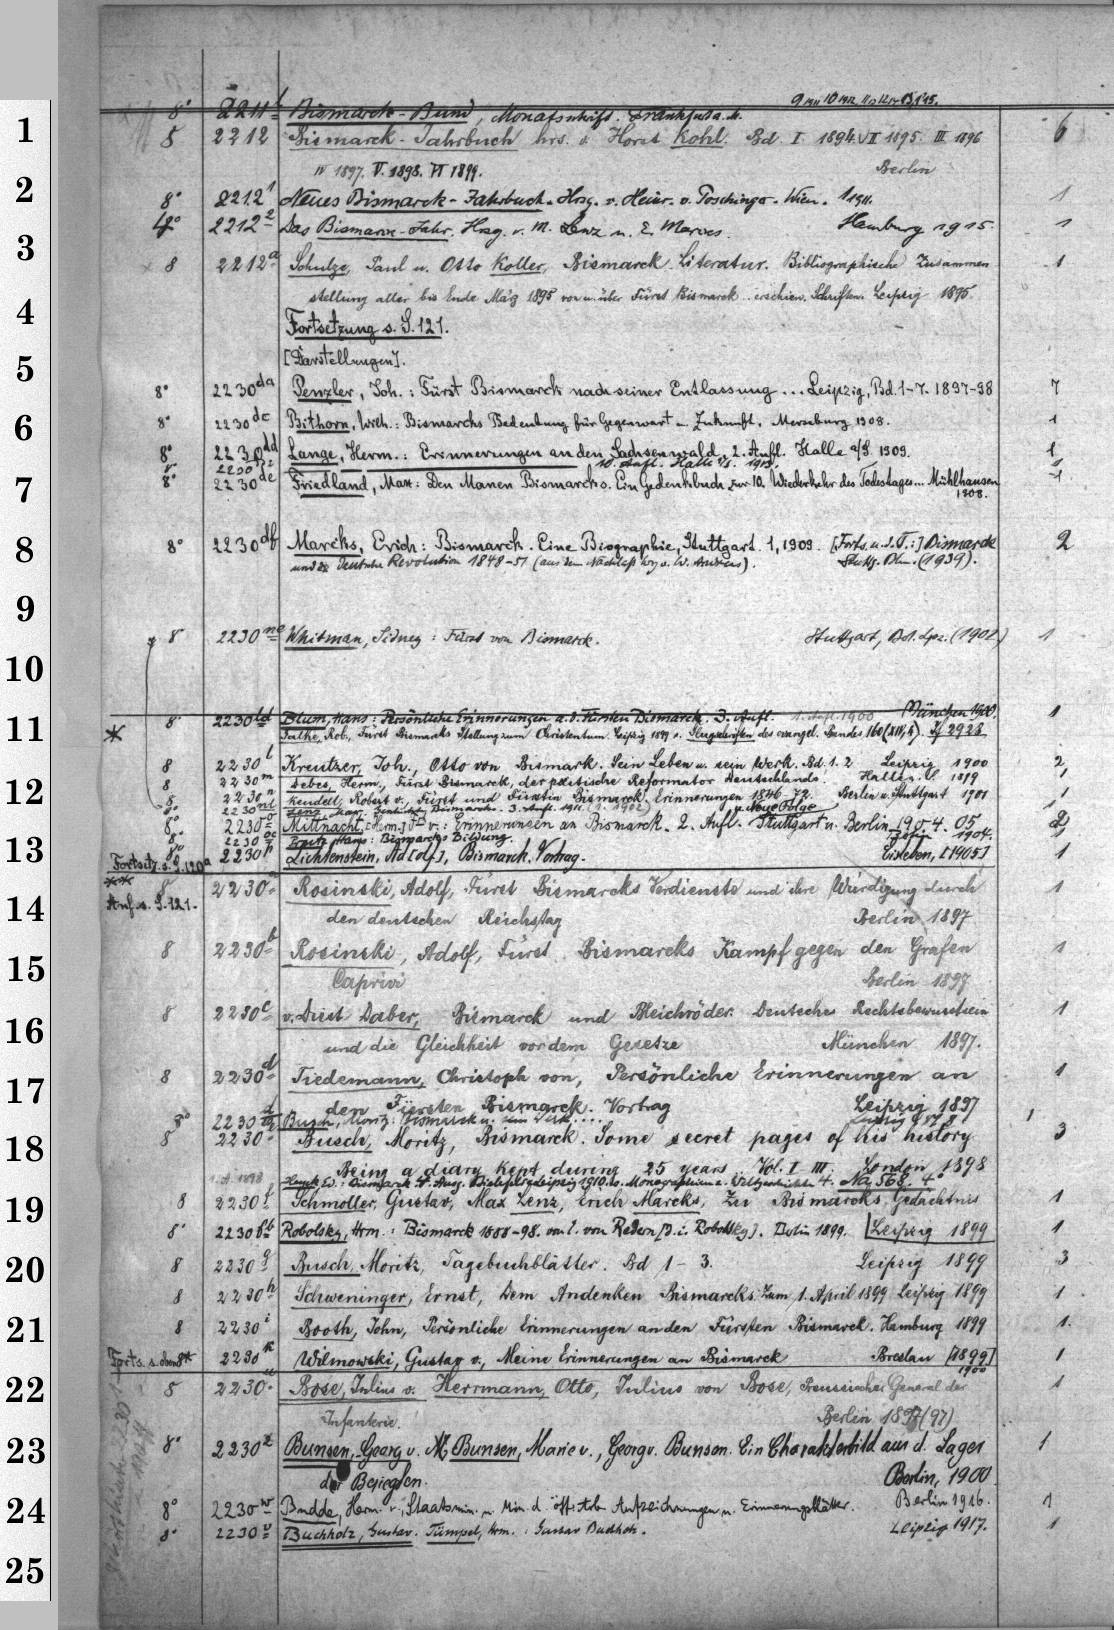 9 1911 10 1912
8° 2211 Bismarck-Bund, Monatsschrift. Frankfurt a. M.
1
8 2212 Bismarck-Jahrbuch hrs. v. Horst Kohl. Bd. I 1894. II 1895. III 1896 6
IV 1897. V. 1898. VI 1899. Berlin
2
8° 2212¹ Neues Bismarck-Jahrbuch. Hrsg. v. Heinr. v. Poschinger. Wien. 1 1911. 1
4° 2212² Das Bismarck-Jahr. Hrsg. v. M. Lenz u. E. Marcks. Hamburg 1915. 1
3
8 2212a Schulze, Paul u. Otto Koller, Bismarck-Literatur. Bibliographische Zusammen 1
stellung aller bis Ende März 1895 von u. über Fürst Bismarck .. erschien. Schriften. Leipzig 1895.
4
Fortsetzung s. S. 121.
[Darstellungen].
5
8° 2230da Penzler, Joh.: Fürst Bismarck nach seiner Entlassung ... Leipzig, Bd. 1-7. 1897-98 7
6
8° 2230dc Bithorn, Wilh.: Bismarcks Bedeutung für Gegenwart u. Zukunft. Merseburg 1908. 1
8° 2230dd Lange, Herm.: Erinnerungen an den Sachsenwald. 2. Aufl. Halle a/S. 1909. 1
10. Aufl. Halle a/S. 1915. 1
7
8° 2230de Friedland, Max: Den Manen Bismarcks. Ein Gedenkbuch zur 10. Wiederkehr des Todestages... Mühlhausen 1
1908.
8
8° 2230df Marcks, Erich: Bismarck. Eine Biographie, Stuttgart. 1, 1909. [Forts. u. d. T.:] Bismarck 2
und die deutsche Revolution 1848-51 (aus dem Nachlaß hrg v. W. Andreas). Stuttg. Bln. (1939).
9
8 2230ne Whitman, Sidney: Fürst von Bismarck. Stuttgart, Bln. Lpz. (1902) 1
10
8 2230ld Blum, Hans: Persönliche Erinnerungen a. d. Fürsten Bismarck. 3. Aufl. 1. Aufl. 1900 München 1900. 1
11
* Falke, Rob., Fürst Bismarcks Stellung zum Christentum. Leipzig 1899 s. Flugschriften des evangel. Bundes 160 (XIV, 4). If 2923
8 2230l Kreutzer, Joh., Otto von Bismark. Sein Leben u. sein Werk. Bd. 1. 2 Leipzig 1900 2
8 2230m Debes, Herm., Fürst Bismarck, der politische Reformator Deutschlands. Halle 1899 1
12
8 2230n Keudell, Robert v., Fürst und Fürstin Bismarck. Erinnerungen 1846-72. Berlin u. Stuttgart 1901 1
8° 2230nd Lenz, Max, Geschichte Bismarcks. 3. Aufl. 1911. (1. 1902) u. Neue Folge
8° 2230o Mittnacht, [Herm.] Frh v.: Erinnerungen an Bismarck. 2. Aufl. Stuttgart u. Berlin 1904. 05 2
8° 2230oc Hans: Bismarcks Bildung. 1904. 1
13
8° 2230p Lichtenstein, Ad[olf], Bismarck. Vortrag. Eisleben, [1905] 1
Fortsetz. s. S. 120a
**
Anf. s. S. 121.
8 2230a Rosinski, Adolf, Fürst Bismarcks Verdienste und ihre Würdigung durch 1
14
den deutschen Reichstag Berlin 1897
8 2230b Rosinski, Adolf, Fürst Bismarcks Kampf gegen den Grafen 1
15
Caprivi Berlin 1897
8 2230c v. Diest Daber, Bismarck und Bleichröder. Deutsches Rechtsbewusstsein 1
16
und die Gleichheit vor dem Gesetze München 1897.
8 2230d Tiedemann, Christoph von, Persönliche Erinnerungen an 1
17
den Fürsten Bismarck. Vortrag Leipzig 1897
8° 2230 Busch, Moritz: Bismarck u. sein Werk.... Leipzig 1898 1
8 2230e Busch, Moritz, Bismarck. Some secret pages of his history 3
18
Being a diary kept during 25 years. Vol. I-III. London 1898
Heyck Ed.: Bismarck. 4. Aufl. Bielefeld u. Leipzig 1910. s. Monographien z. Weltgeschichte 4. Na 568. 4°
19
8 2230f Schmoller, Gustav, Max Lenz, Erich Marcks, Zu Bismarcks Gedächtnis 1
8° 2230fb Robolsky, Hrm.: Bismarck 1888-98. von L. von Redern [d. i. Robolsky]. Berlin 1899. Leipzig 1899 1
20
8 2230g Busch, Moritz, Tagebuchblätter. Bd 1-3. Leipzig 1899 3
8 2230h Schweninger, Ernst, Dem Andenken Bismarcks. Zum 1. April 1899 Leipzig 1899 1
21
8 2230i Booth, John, Persönliche Erinnerungen an den Fürsten Bismarck. Hamburg 1899 1
Forts. s. oben 8* 2230k Wilmowski, Gustav v., Meine Erinnerungen an Bismarck Breslau [1899] 1
1900
22
8 2230 Bose, Julius v. Herrmann, Otto, Julius von Bose, Preussischer General der 1
Infanterie. Berlin 1897(97)
23
8° 2230z Bunsen, Georg v. Bunsen, Marie v., Georg v. Bunsen. Ein Charakterbild aus d. Lager 1
der Besiegten. Berlin, 1900
24
8° 2230w Budde, Herm. v., Staatsmin. u. Min. d. öff. Arb. Aufzeichnungen u. Erinnerungsblätter. Berlin 1916. 1
8° 2230v Buchholz, Gustav. Tümpel, Hrm.: Gustav Buchholz. Leipzig 1917. 1
25